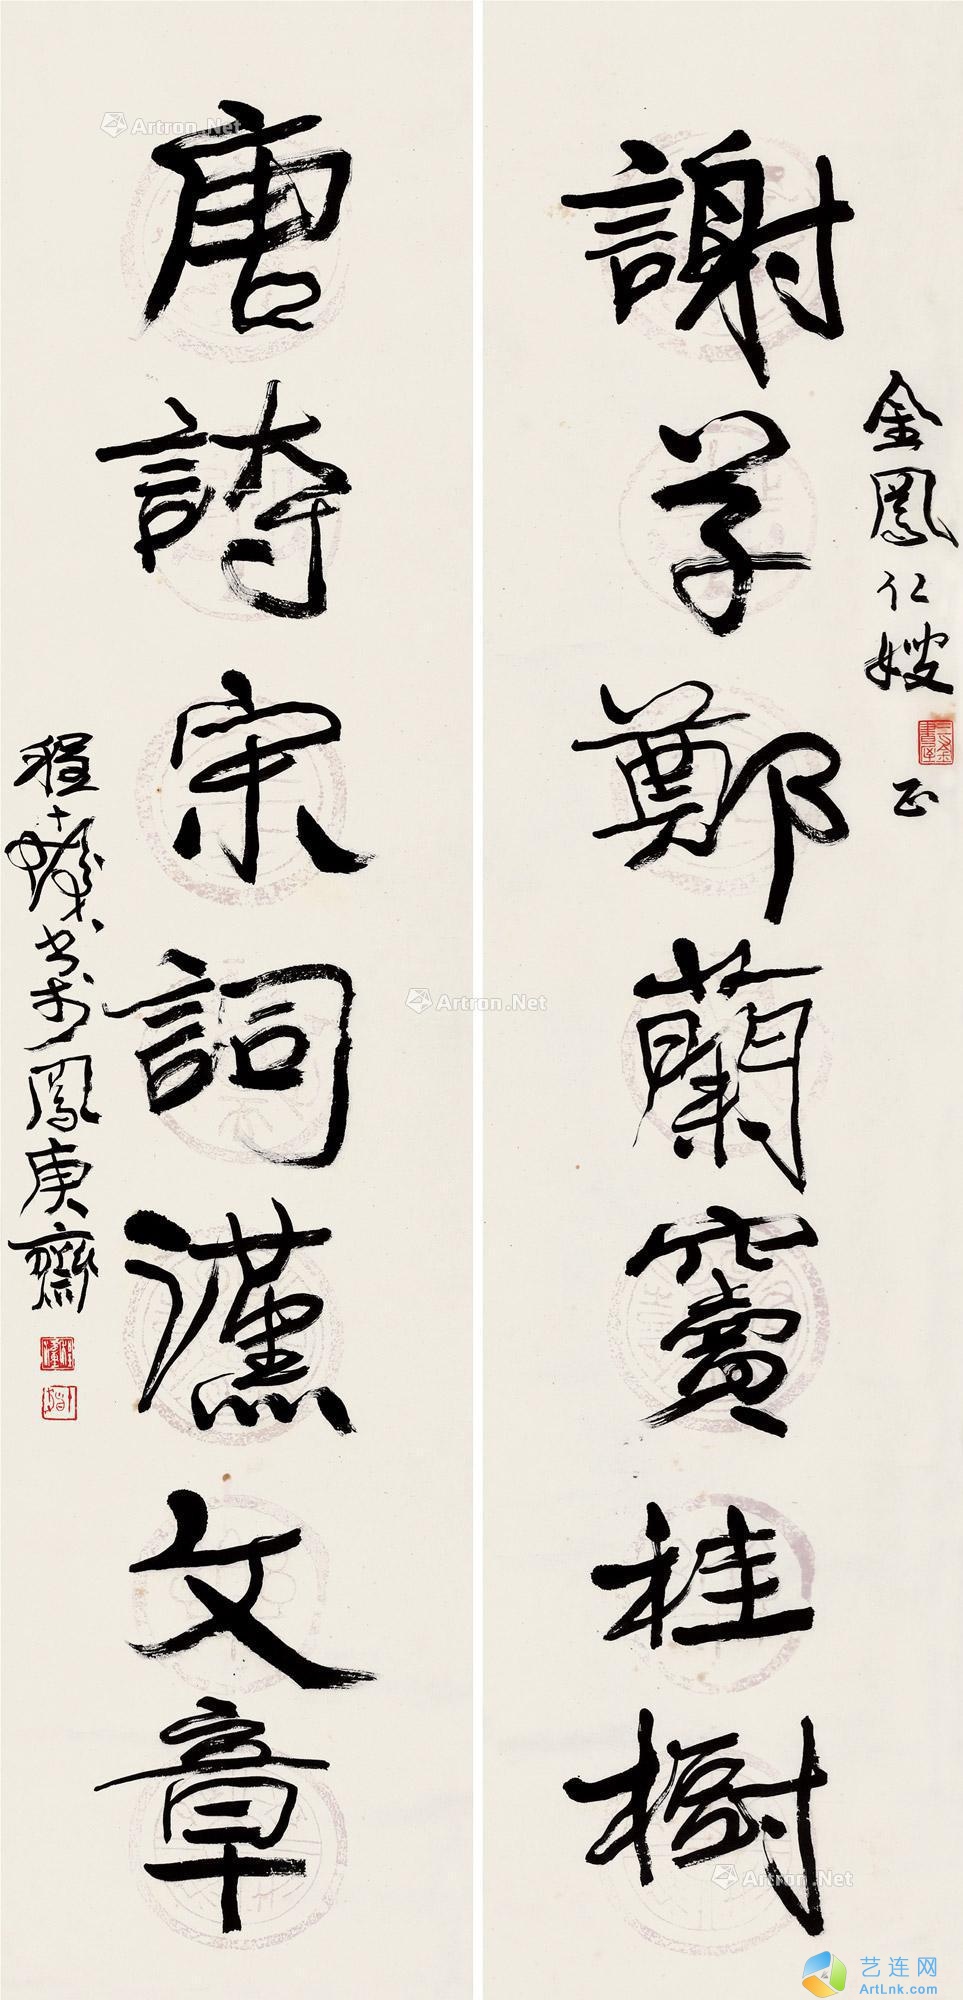 金鳳仁嫂正
謝草鄭蘭竇桂樹
唐詩宋詞漢文章
程十髮書於鳳庚齋
Artron.Net
Artron.Net
Artron.Net
艺连网
ArtLnk.com